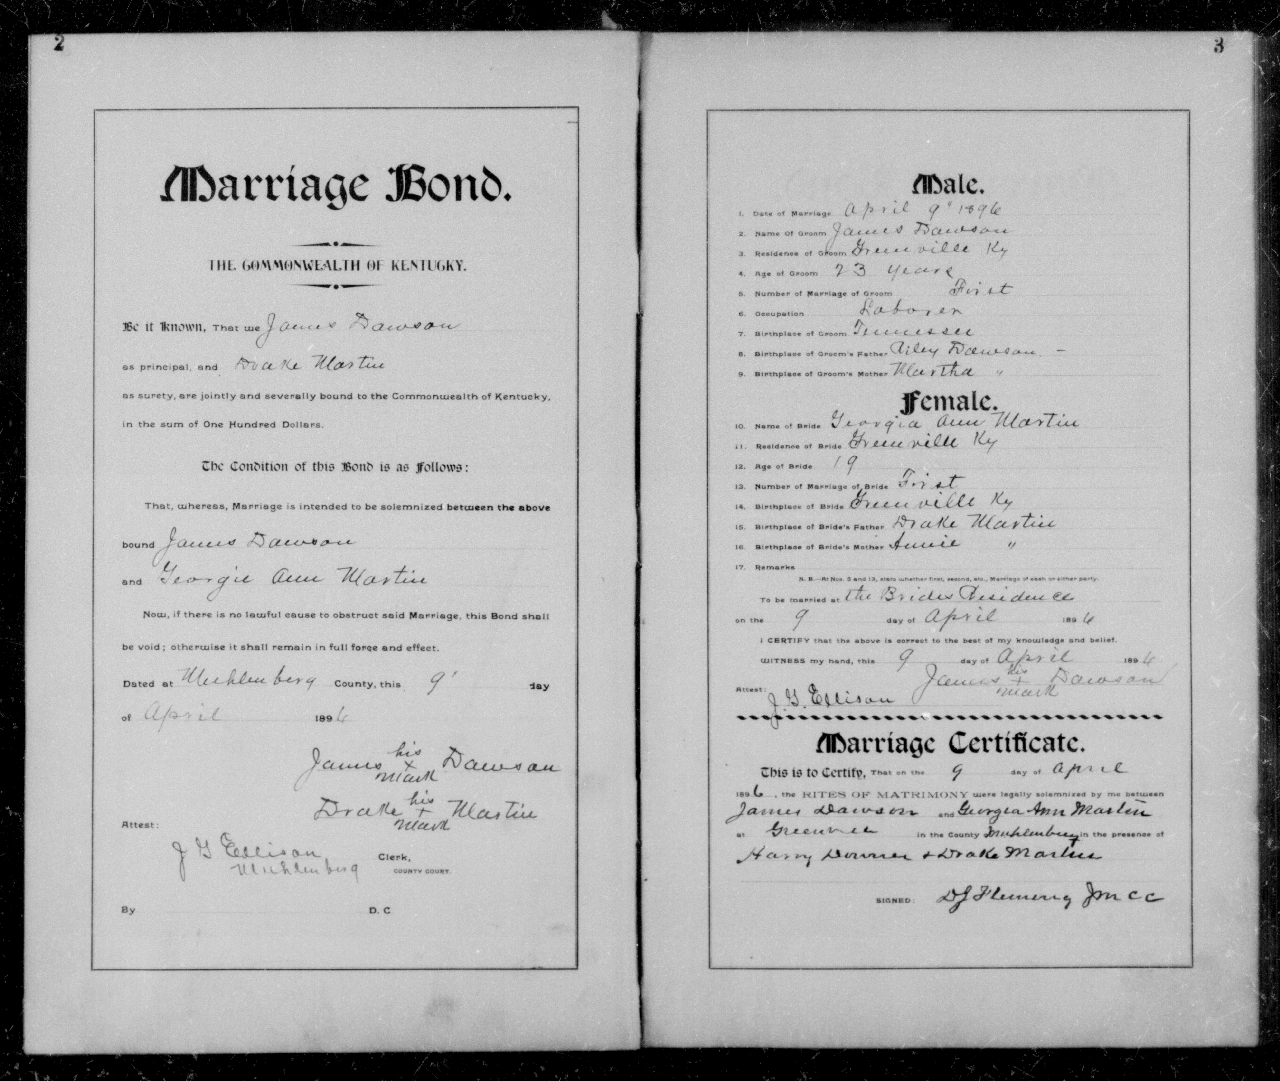 2
Marriage Bond.
THE COMMONWEALTH OF KENTUCKY.
Be it Known, That we James Dawson
as principal, and Drake Martin
as surety, are jointly and severally bound to the Commonwealth of Kentucky,
in the sum of One Hundred Dollars.
The Condition of this Bond is as Follows:
That, whereas, Marriage is intended to be solemnized between the above
bound James Dawson
and Georgie Ann Martin
Now, if there is no lawful cause to obstruct said Marriage, this Bond shall
be void; otherwise it shall remain in full force and effect.
Dated at Muhlenberg County, this 9" day
of April 1896
James his x mark Dawson
Drake his + mark Martin
Attest:
J G Ellison Clerk,
Muhlenberg COUNTY COURT.
By D. C
3
Male.
1. Date of Marriage April 9" 1896
2. Name Of Groom James Dawson
3. Residence of Groom Greenville Ky
4. Age of Groom 23 years
5. Number of Marriage of Groom First
6. Occupation Laborer
7. Birthplace of Groom Tennessee
8. Birthplace of Groom's Father Riley Dawson. –
9. Birthplace of Groom's Mother Martha "
Female.
10. Name of Bride Georgia Ann Martin
11. Residence of Bride Greenville Ky
12. Age of Bride 19
13. Number of Marriage of Bride First
14. Birthplace of Bride Greenville Ky
15. Birthplace of Bride's Father Drake Martin
16. Birthplace of Bride's Mother Annie "
17. Remarks
N. B.—At Nos. 5 and 13, state whether first, second, etc., Marriage of each or either party.
To be married at the Brides Residence
on the 9 day of April 1896
I CERTIFY that the above is correct to the best of my knowledge and belief.
WITNESS my hand, this 9 day of April 1896
James his + mark Dawson
Attest: J. G. Ellison
Marriage Certificate.
This is to Certify, That on the 9 day of April
1896, the RITES OF MATRIMONY were legally solemnized by me between
James Dawson and Georgia Ann Martin
at in the County Muhlenberg in the presence of
Harry Downer & Drake Martin
SIGNED: D J Fleming